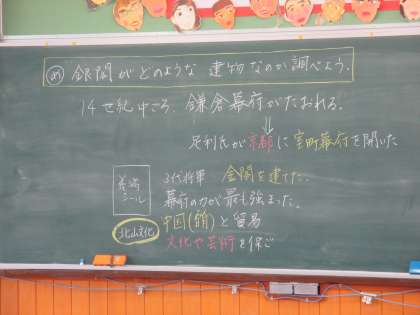 め 銀閣がどのような建物なのか調べよう。
14世紀中ごろ、鎌倉幕府がたおれる。
⇓
足利氏が京都に室町幕府を開いた
義満シール
3代将軍 金閣を建てた。
幕府の力が最も強まった。
北山文化
中国(明)と貿易
文化や芸術を保ご